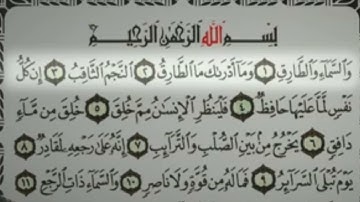 بِسْمِ اللَّهِ الرَّحْمَٰنِ الرَّحِيمِ
وَالسَّمَاءِ وَالطَّارِقِ ١ وَمَا أَدْرَاكَ مَا الطَّارِقُ ٢ النَّجْمُ الثَّاقِبُ ٣ إِنْ كُلُّ
نَفْسٍ لَمَّا عَلَيْهَا حَافِظٌ ٤ فَلْيَنْظُرِ الْإِنْسَانُ مِمَّ خُلِقَ ٥ خُلِقَ مِنْ مَاءٍ
دَافِقٍ ٦ يَخْرُجُ مِنْ بَيْنِ الصُّلْبِ وَالتَّرَائِبِ ٧ إِنَّهُ عَلَى رَجْعِهِ لَقَادِرٌ ٨
يَوْمَ تُبْلَى السَّرَائِرُ ٩ فَمَا لَهُ مِنْ قُوَّةٍ وَلَا نَاصِرٍ ١٠ وَالسَّمَاءِ ذَاتِ الرَّجْعِ ١١